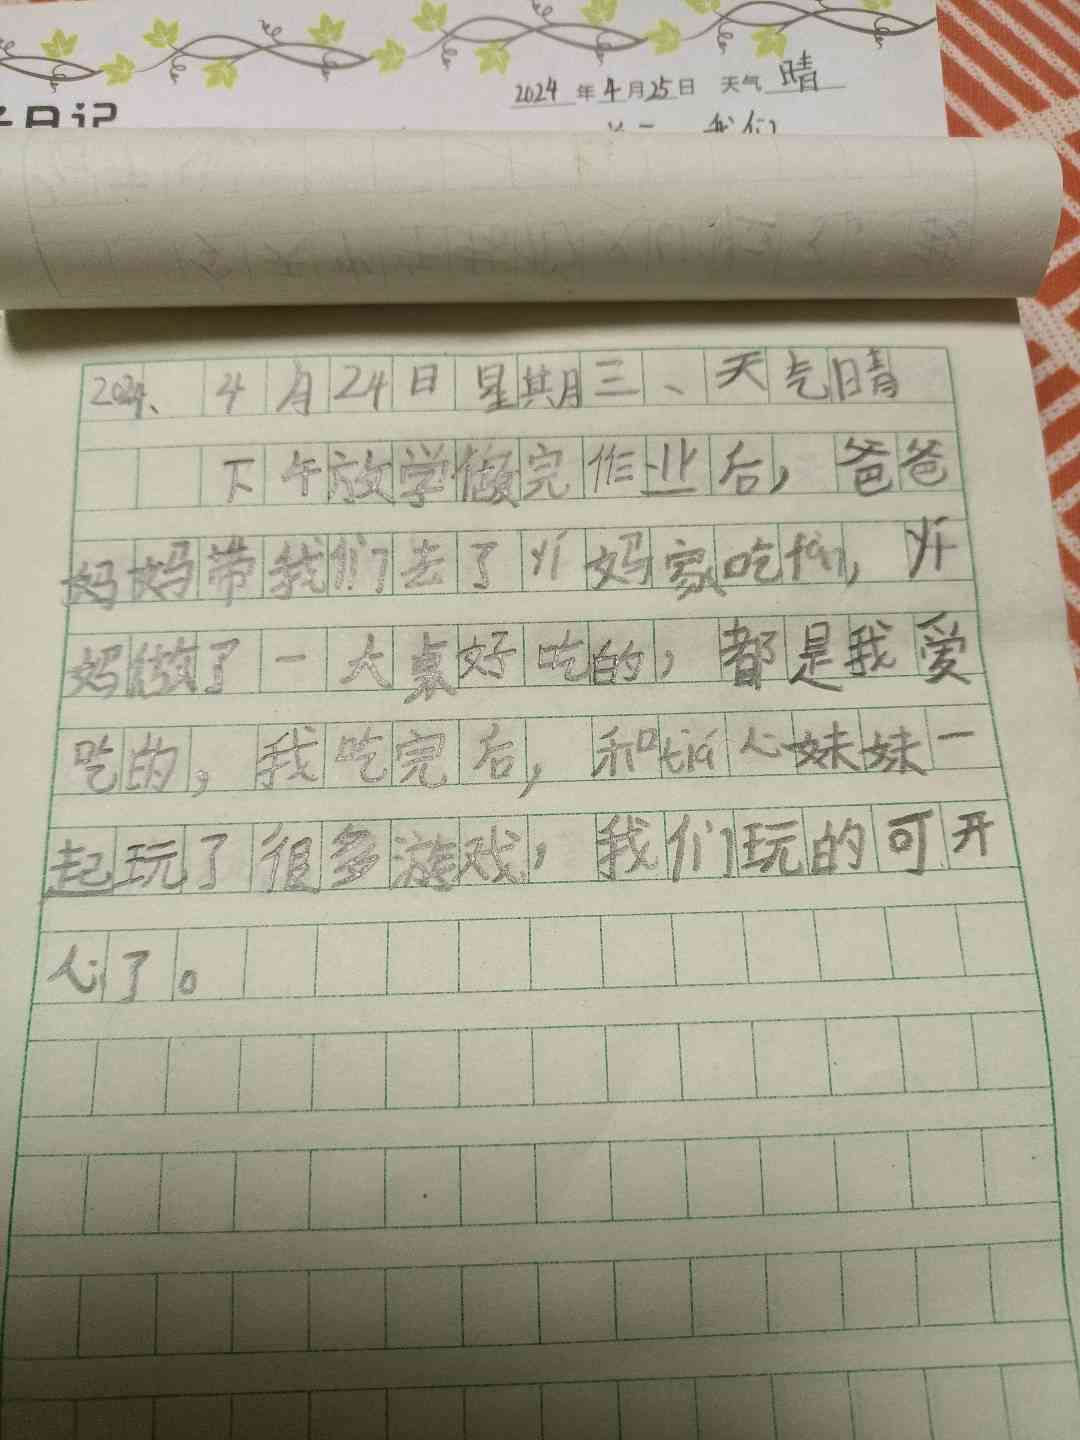 日记
2024年4月25日 天气 晴
我们
2024、4月24日星期三、天气晴
下午放学做完作业后，爸爸
妈妈带我们去了yí妈家吃fàn，yí
妈做了一大桌好吃的，都是我爱
吃的，我吃完后，和tián心妹妹一
起玩了很多游戏，我们玩的可开
心了。